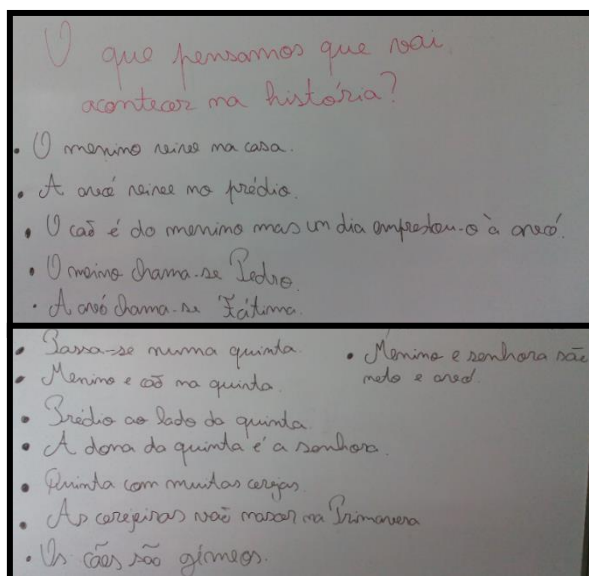 O que pensamos que vai
acontecer na história?
• O menino vive na casa.
• A avó vive no prédio.
• O cão é do menino mas um dia emprestou-o à avó.
• O menino chama-se Pedro.
• A avó chama-se Fátima.
• Passa-se numa quinta.
• Menino e cão na quinta.
• Prédio ao lado da quinta.
• A dona da quinta é a senhora.
• Quinta com muitas cerejas.
• As cerejeiras vão nascer na Primavera
• Os cães são gémeos.
• Menino e senhora são
neto e avó.